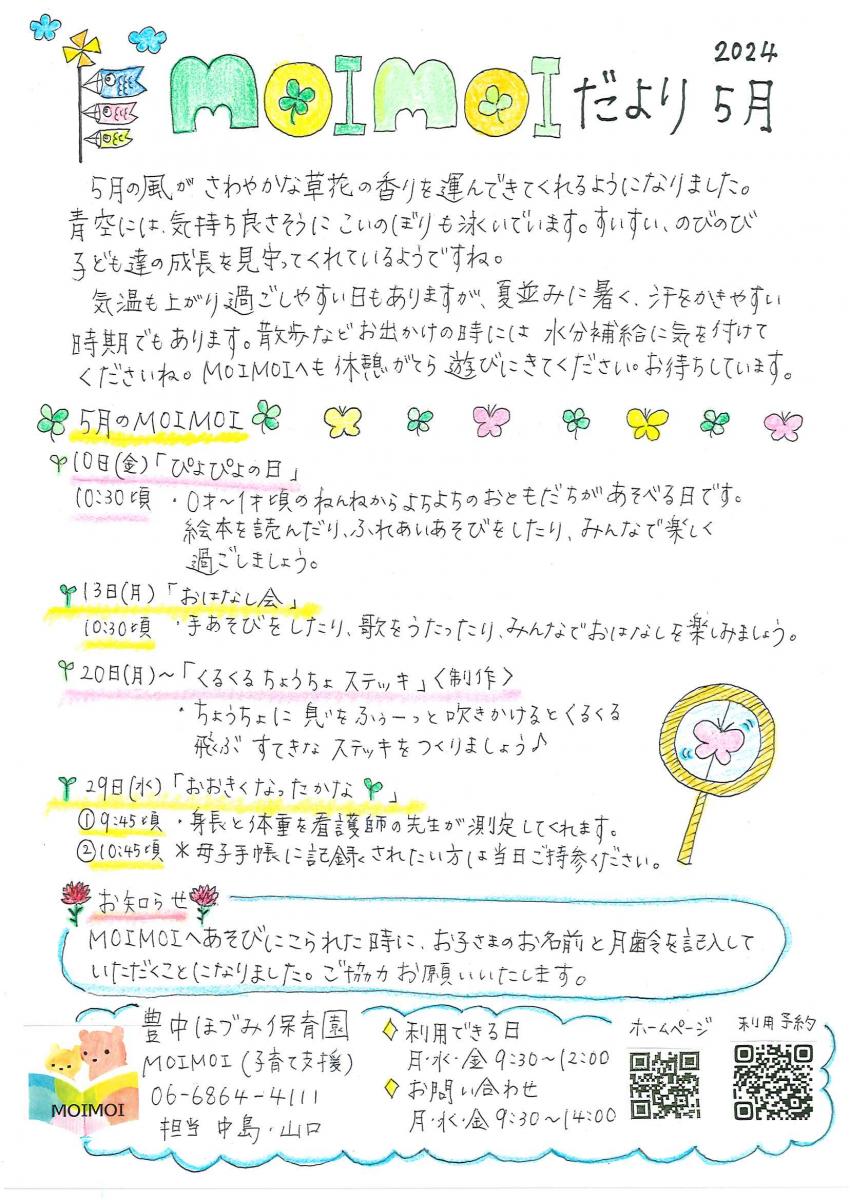 2024
MOIMOIだより 5月
5月の風が さわやかな草花の香りを運んできてくれるようになりました。
青空には、気持ち良さそうに こいのぼりも泳いでいます。すいすい、のびのび
子ども達の成長を見守ってくれているようですね。
気温も上がり過ごしやすい日もありますが、夏並みに暑く、汗をかきやすい
時期でもあります。散歩などお出かけの時には 水分補給に気を付けて
くださいね。MOIMOIへも休憩がてら 遊びにきてください。お待ちしています。
5月のMOIMOI
10日(金)「ぴよぴよの日」
10:30頃 ・0才〜1才頃のねんねからよちよちのおともだちがあそべる日です。
絵本を読んだり、ふれあいあそびをしたり、みんなで楽しく
過ごしましょう。
13日(月)「おはなし会」
10:30頃 ・手あそびをしたり、歌をうたったり、みんなでおはなしを楽しみましょう。
20日(月)〜「くるくるちょうちょ ステッキ」〈制作〉
・ちょうちょに 息をふぅーっと吹きかけるとくるくる
飛ぶ すてきな ステッキをつくりましょう♪
29日(水)「おおきくなったかな」
①9:45頃 ・身長と体重を看護師の先生が測定してくれます。
②10:45頃 *母子手帳に記録されたい方は当日ご持参ください。
お知らせ
MOIMOIへあそびにこられた時に、お子さまのお名前と月齢を記入して
いただくことになりました。ご協力お願いいたします。
MOIMOI
豊中ほづみ保育園
MOIMOI(子育て支援)
06-6864-4111
担当 中島・山口
利用できる日
月・水・金 9:30〜12:00
お問い合わせ
月・水・金 9:30〜14:00
ホームページ
利用予約